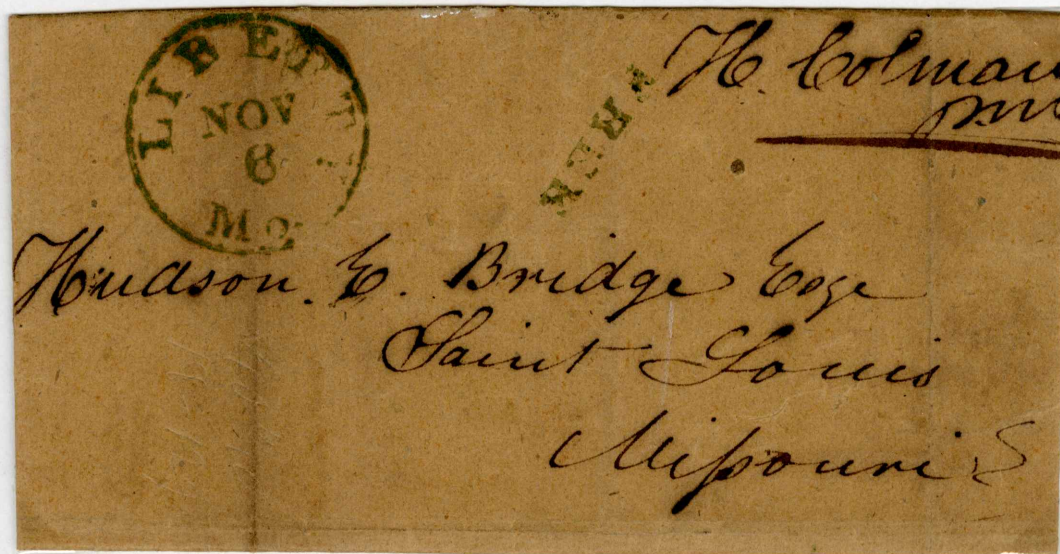 LIBERTY
NOV
6
MO.
FREE
H. Colman
P.M.
Hudson. E. Bridge Esqr
Saint Louis
Missouri